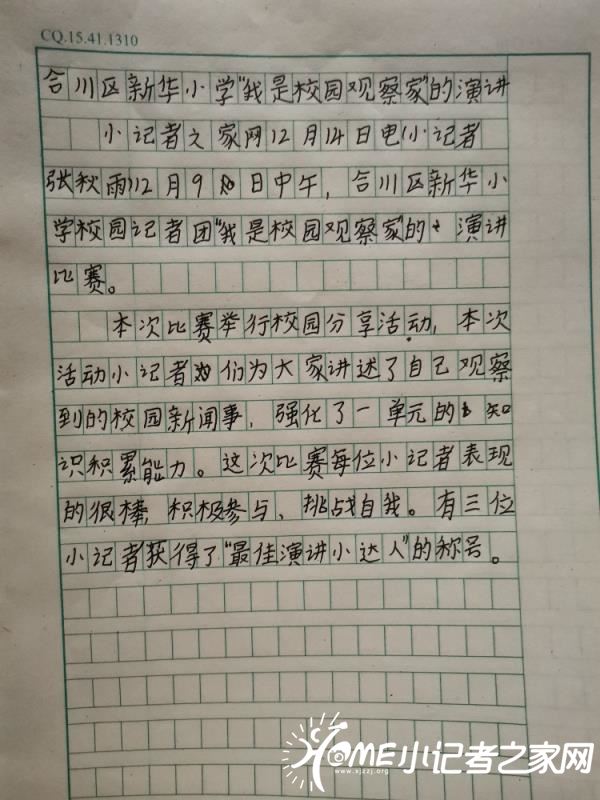 CQ.15.41.1310
合川区新华小学“我是校园观察家”的演讲
小记者之家网12月14日电(小记者
张秋雨)12月9日中午，合川区新华小
学校园记者团“我是校园观察家”的演讲
比赛。
本次比赛举行校园分享活动，本次
活动小记者们为大家讲述了自己观察
到的校园新闻事，强化了一单元的知
识积累能力。这次比赛每位小记者表现
的很棒，积极参与、挑战自我。有三位
小记者获得了“最佳演讲小达人”的称号。
HOME小记者之家网
www.xjzzj.org